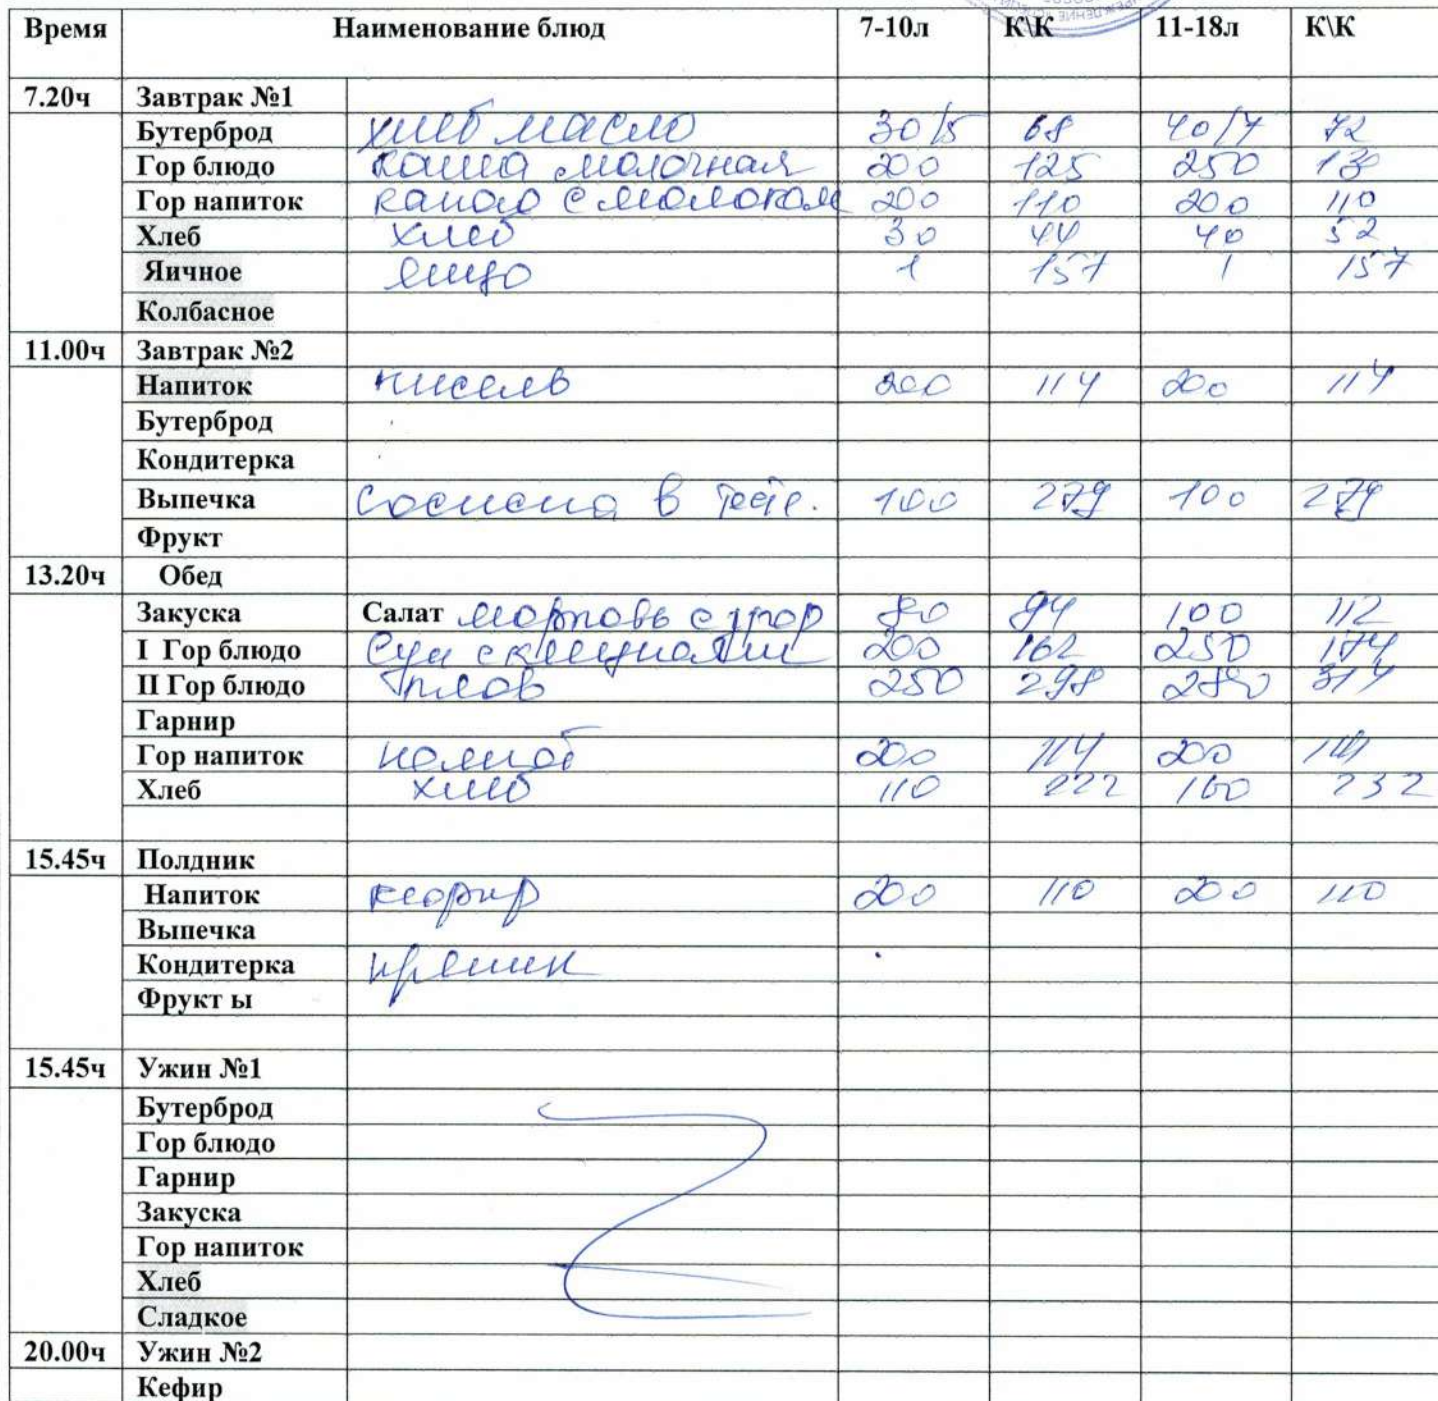 Время Наименование блюд 7-10л К\К 11-18л К\К
7.20ч Завтрак №1
Бутерброд хлеб масло 30/5 68 40/7 72
Гор блюдо каша молочная 200 125 250 130
Гор напиток какао с молоком 200 110 200 110
Хлеб хлеб 30 44 40 52
Яичное яйцо 1 157 1 157
Колбасное
11.00ч Завтрак №2
Напиток кисель 200 114 200 114
Бутерброд
Кондитерка
Выпечка Сосиска в тесте. 100 279 100 279
Фрукт
13.20ч Обед
Закуска Салат морковь с 80 94 100 112
I Гор блюдо Суп с клецками 200 162 250 174
II Гор блюдо плов 250 298 280 314
Гарнир
Гор напиток компот 200 114 200
Хлеб хлеб 110 222 160 232
15.45ч Полдник
Напиток кефир 200 110 200 110
Выпечка
Кондитерка пряник
Фрукт ы
15.45ч Ужин №1
Бутерброд
Гор блюдо
Гарнир
Закуска
Гор напиток
Хлеб
Сладкое
20.00ч Ужин №2
Кефир